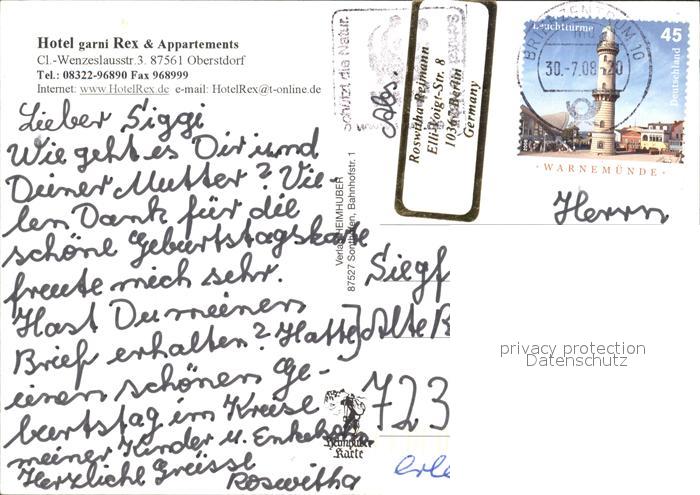 Hotel garni Rex & Appartements
Cl.-Wenzeslausstr.3. 87561 Oberstdorf
Tel.: 08322-96890 Fax 968999
Internet: www.HotelRex.de e-mail: HotelRex@t-online.de
Lieber Siggi
Wie geht es Dir und
Deiner Mutter? Vie-
len Dank für die
schöne Geburtstagskarte
freute mich sehr.
Hast Du meinen
Brief erhalten? Hatte
einen schönen Ge-
burtstag im Kreise
meiner Kinder u. Enkel
Herzliche Grüsse
Roswitha
Verlag HEIMHUBER
87527 Sonthofen, Bahnhofstr. 1
Heimhuber
Karte
Schützt die Natur.
Abs.
Roswitha
Elli-Voigt-Str. 8
Berlin
Germany
BRIEFZENTRUM 10
30.-7.08-20
Leuchttürme
45
Deutschland
WARNEMÜNDE
Herrn
Siegf
Alte B
723
erle
privacy protection
Datenschutz